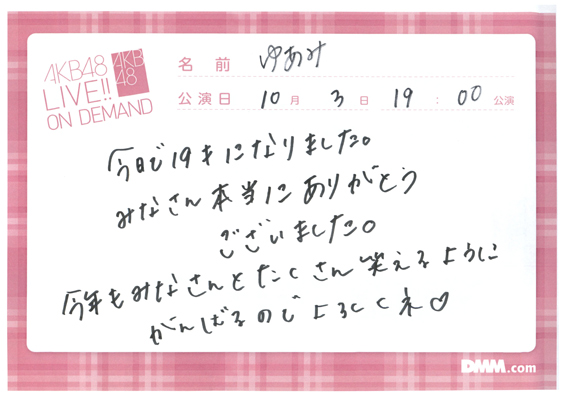 AKB48
LIVE!!
ON DEMAND
AKB
48
名前 ゆあみ
公演日 10月 3日 19:00 公演
今日で19才になりました。
みなさん本当にありがとう
ございました。
今年もみなさんとたくさん笑えるように
がんばるのでよろしくネ♡
DMM.com